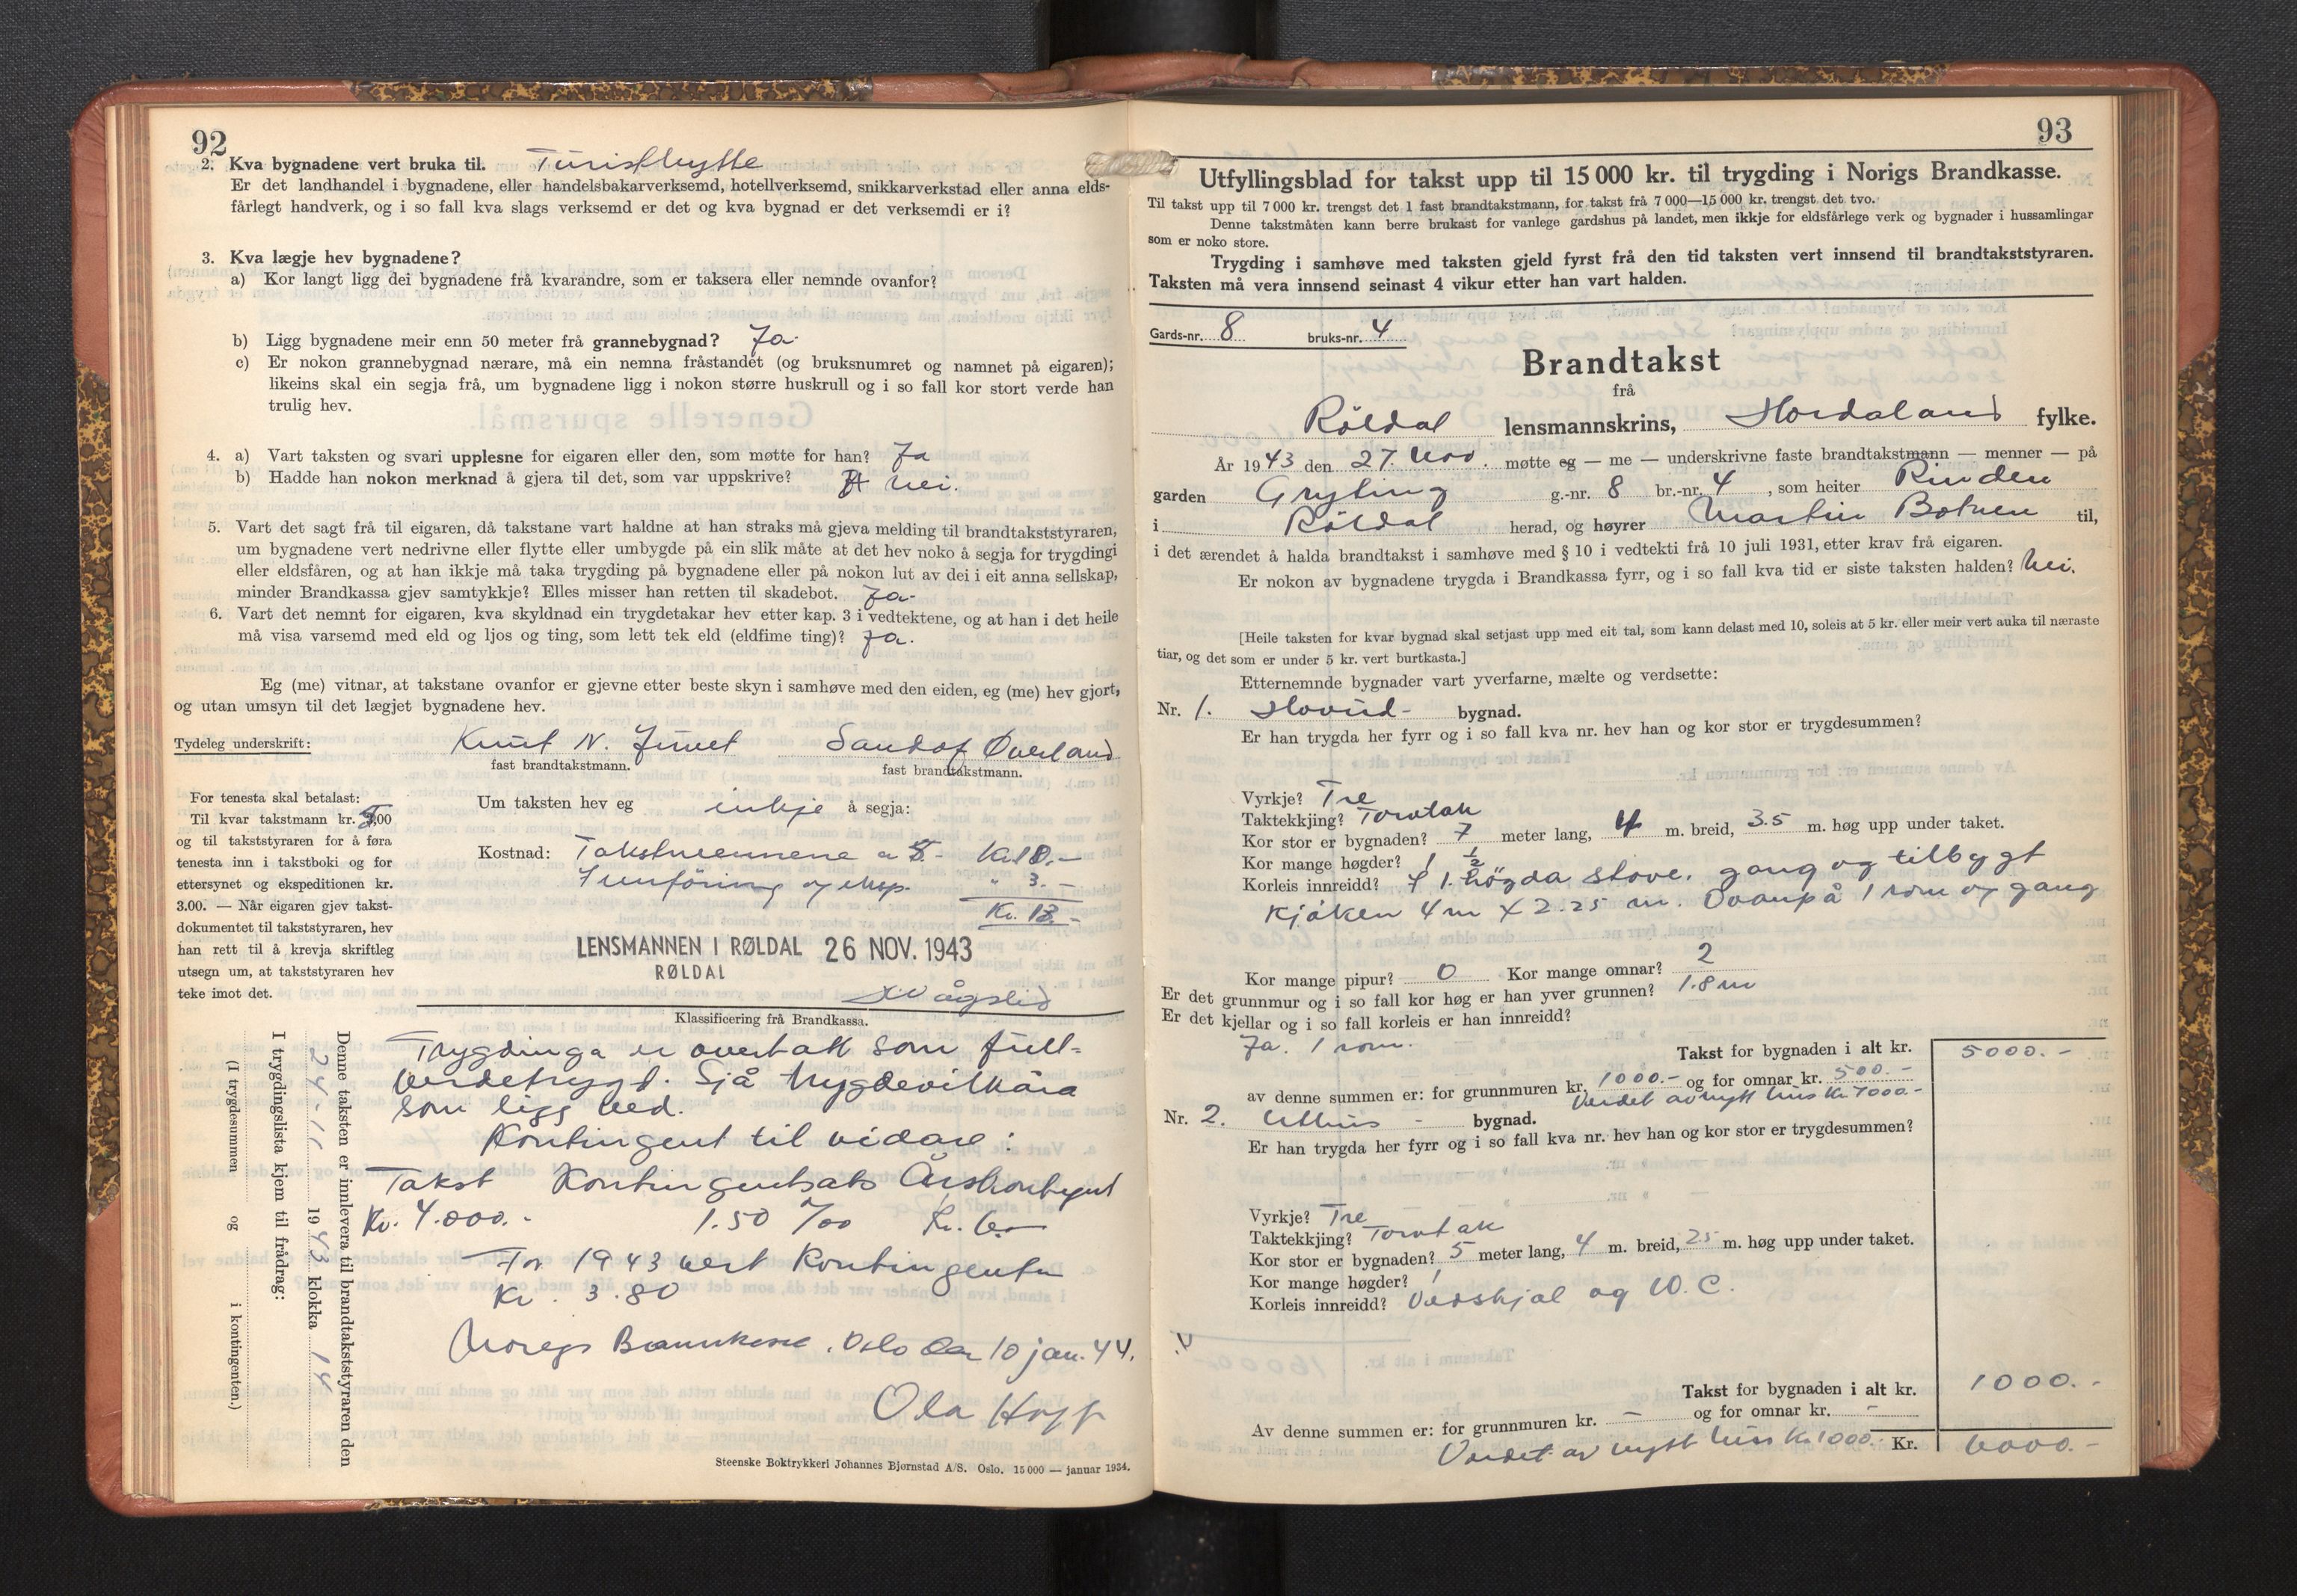 92
2. Kva bygnadene vert bruka til. Turisthytte
Er det landhandel i bygnadene, eller handelsbakarverksemd, hotellverksemd, snikkarverkstad eller anna elds-
fårlegt handverk, og i so fall kva slags verksemd er det og kva bygnad er det verksemdi er i?
3. Kva lægje hev bygnadene?
a) Kor langt ligg dei bygnadene frå kvarandre, som er taksera eller nemnde ovanfor?
b) Ligg bygnadene meir enn 50 meter frå grannebygnad? Ja
c) Er nokon grannebygnad nærare, må ein nemna fråstandet (og bruksnumret og namnet på eigaren);
likeins skal ein segja frå, um bygnadene ligg i nokon større huskrull og i so fall kor stort verde han
trulig hev.
4. a) Vart taksten og svari upplesne for eigaren eller den, som møtte for han? Ja
b) Hadde han nokon merknad å gjera til det, som var uppskrive? Nei.
5. Vart det sagt frå til eigaren, då takstane vart haldne at han straks må gjeva melding til brandtakststyraren,
um bygnadene vert nedrivne eller flytte eller umbygde på ein slik måte at det hev noko å segja for trygdingi
eller eldsfåren, og at han ikkje må taka trygding på bygnadene eller på nokon lut av dei i eit anna sellskap,
minder Brandkassa gjev samtykkje? Elles misser han retten til skadebot. Ja-
6. Vart det nemnt for eigaren, kva skyldnad ein trygdetakar hev etter kap. 3 i vedtektene, og at han i det heile
må visa varsemd med eld og ljos og ting, som lett tek eld (eldfime ting)? Ja.
Eg (me) vitnar, at takstane ovanfor er gjevne etter beste skyn i samhøve med den eiden, eg (me) hev gjort,
og utan umsyn til det lægjet bygnadene hev.
Tydeleg underskrift: Knut N. Juvet Sandof Överland
fast brandtakstmann. fast brandtakstmann.
Um taksten hev eg inkje å segja:
Kostnad: Takstmennene a 5.- Kr. 10.-
Innföring og eksp. " 3.-
Kr. 13.-
For tenesta skal betalast:
Til kvar takstmann kr. 5,00
og til takststyraren for å føra
tenesta inn i takstboki og for
ettersynet og ekspeditionen kr.
3.00. — Når eigaren gjev takst-
dokumentet til takststyraren, hev
han rett til å krevja skriftleg
utsegn um, at takststyraren hev
teke imot det.
LENSMANNEN I RØLDAL 26 NOV. 1943
RØLDAL
Vågslid
Klassificering frå Brandkassa.
Trygdinga er overtatt som full-
verdetrygd. Sjå trygdevilkåra
som ligg ved.
Kontingent til vidare:
Takst Kontingentsats Årskontingent
Kr. 4.000.- 1.50 ‰ Kr. 6.-
For 1943 vert kontingenten
Kr. 3.80
Noregs Brannkasse, Oslo den 10 jan. 44.
Ola Hopp
Denne taksten er innlevera til brandtakststyraren den
24-11 1943 klokka 14
I trygdingslista kjem til frådrag:
(I trygdesummen og i kontingenten.)
Steenske Boktrykkeri Johannes Bjørnstad A/S. Oslo. 15000 — januar 1934.
93
Utfyllingsblad for takst upp til 15 000 kr. til trygding i Norigs Brandkasse.
Til takst upp til 7 000 kr. trengst det 1 fast brandtakstmann, for takst frå 7 000—15 000 kr. trengst det tvo.
Denne takstmåten kann berre brukast for vanlege gardshus på landet, men ikkje for eldsfårlege verk og bygnader i hussamlingar
som er noko store.
Trygding i samhøve med taksten gjeld fyrst frå den tid taksten vert innsend til brandtakststyraren.
Taksten må vera innsend seinast 4 vikur etter han vart halden.
Gards-nr. 8 bruks-nr. 4
Brandtakst
frå
Röldal lensmannskrins, Hordaland fylke.
År 1943 den 27. Nov. møtte eg — me — underskrivne faste brandtakstmann — menner — på
garden Gryting g.-nr. 8 br.-nr. 4, som heiter Rinden
i Röldal herad, og høyrer Martin Botnen til,
i det ærendet å halda brandtakst i samhøve med § 10 i vedtekti frå 10 juli 1931, etter krav frå eigaren.
Er nokon av bygnadene trygda i Brandkassa fyrr, og i so fall kva tid er siste taksten halden? Nei.
[Heile taksten for kvar bygnad skal setjast upp med eit tal, som kann delast med 10, soleis at 5 kr. eller meir vert auka til næraste
tiar, og det som er under 5 kr. vert burtkasta.]
Etternemnde bygnader vart yverfarne, mælte og verdsette:
Nr. 1. Hovud- bygnad.
Er han trygda her fyrr og i so fall kva nr. hev han og kor stor er trygdesummen?
Vyrkje? Tre
Taktekkjing? Torvtak
Kor stor er bygnaden? 7 meter lang, 4 m. breid, 3.5 m. høg upp under taket.
Kor mange høgder? 1 ½
Korleis innreidd? I 1. högda stove, gang og tilbygt
kjöken 4 m x 2.25 m. Ovanpå 1 rom og gang
Kor mange pipur? 0 Kor mange omnar? 2
Er det grunnmur og i so fall kor høg er han yver grunnen? 1.8 m
Er det kjellar og i so fall korleis er han innreidd?
Ja. 1 rom.
Takst for bygnaden i alt kr. 5000.-
av denne summen er: for grunnmuren kr. 1000.- og for omnar kr. 500.-
Verdet av nytt hus kr. 7000.-
Nr. 2. Uthus - bygnad.
Er han trygda her fyrr og i so fall kva nr. hev han og kor stor er trygdesummen?
Vyrkje? Tre
Taktekkjing? Torvtak
Kor stor er bygnaden? 5 meter lang, 4 m. breid, 25 m. høg upp under taket.
Kor mange høgder? 1
Korleis innreidd? Vedskjal og W.C.
Takst for bygnaden i alt kr. 1000.-
Av denne summen er: for grunnmuren kr. - og for omnar kr. -
Verdet av nytt hus kr. 1000.- Kr. 6000.-